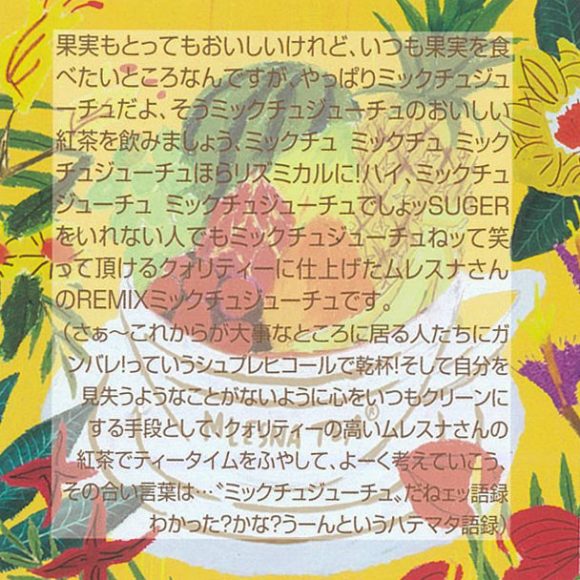 果実もとってもおいしいけれど、いつも果実を食
べたいところなんですが、やっぱりミックチュジュ
ーチュだよ、そうミックチュジューチュのおいしい
紅茶を飲みましょう、ミックチュ ミックチュ ミック
チュジューチュほらリズミカルに!ハイ、ミックチュ
ジューチュ ミックチュジューチュでしょッSUGER
をいれない人でもミックチュジューチュねッて笑
って頂けるクォリティーに仕上げたムレスナさん
のREMIXミックチュジューチュです。
(さぁ〜これからが大事なところに居る人たちにガ
ンバレ!っていうシュプレヒコールで乾杯!そして自分を
見失うようなことがないように心をいつもクリーンに
する手段として、クォリティーの高いムレスナさんの
紅茶でティータイムをふやして、よーく考えていこう、
その合い言葉は…〝ミックチュジューチュ〟だねェッ語録
わかった?かな?うーんというハテマタ語録)
MLESNA TEA®